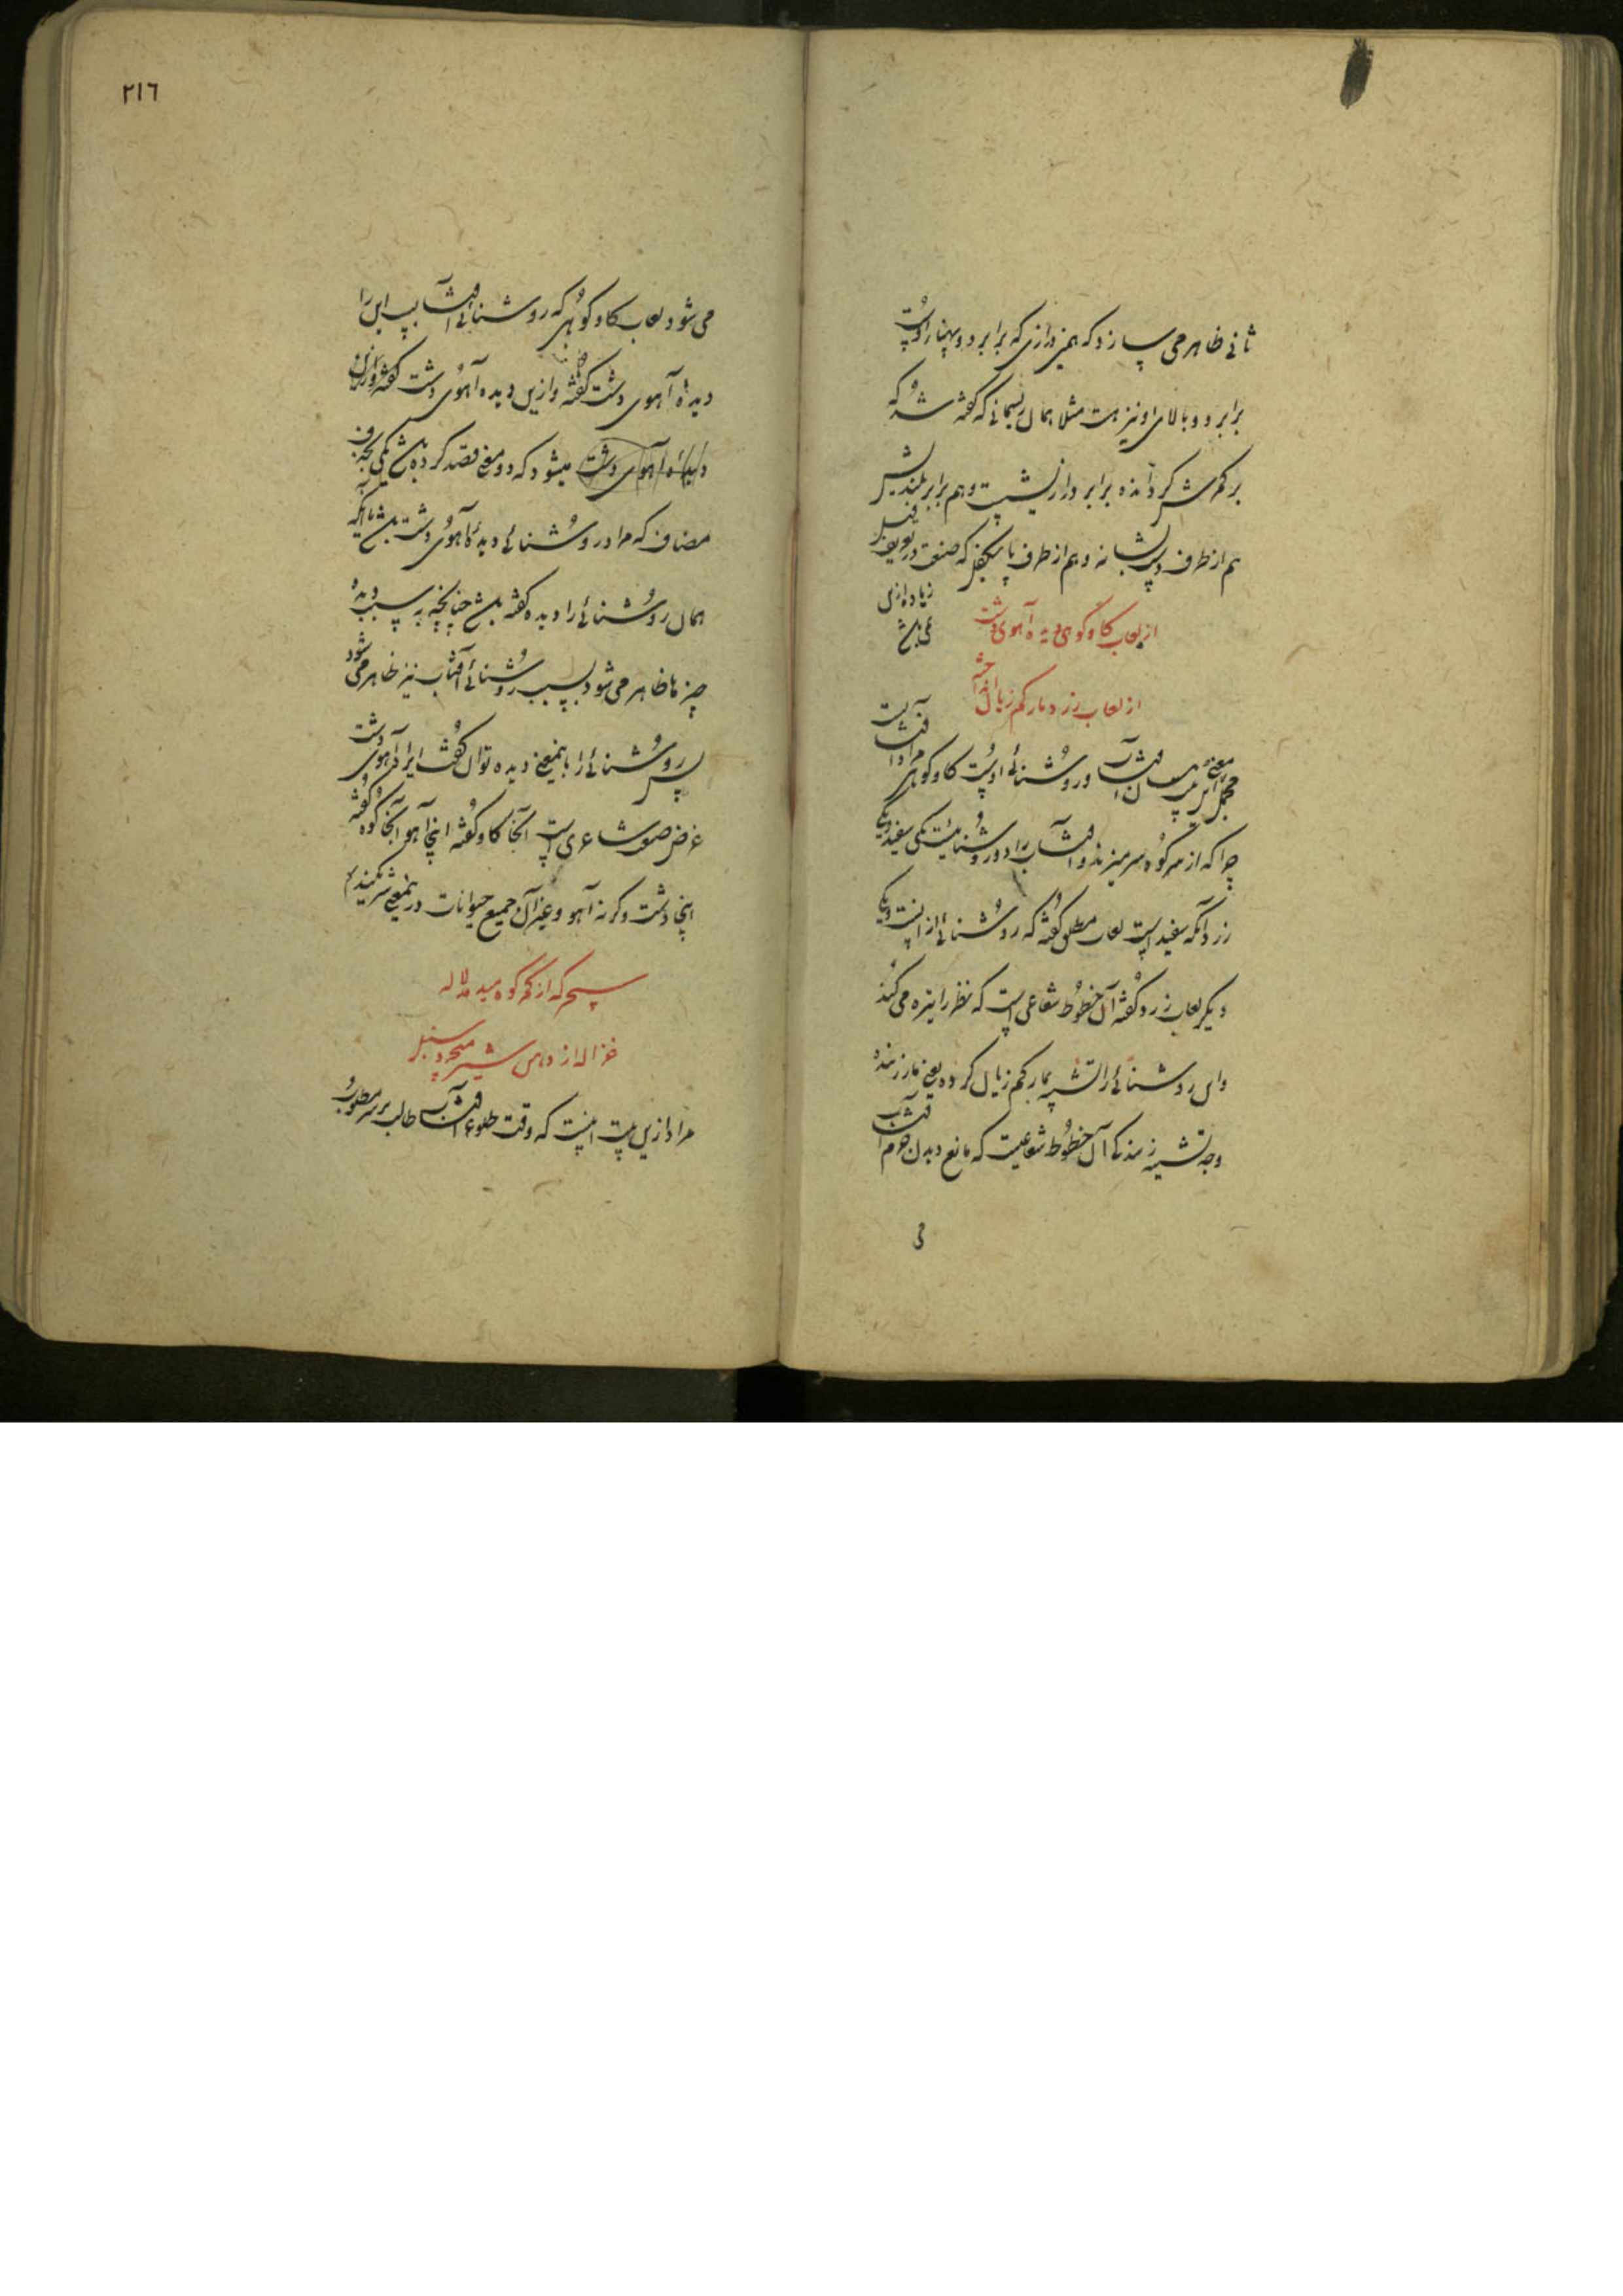 ثانی ظاهر می سازد که همین درازی که برابر دو پهنا راوست
برابر دو بالای او نیز هست مثلا همان ریسمانی که گفته شد که
بر کمرش گرد آمده برابر درازیست و هم برابر بلندیش
هم از طرف و هم از طرف پا که صنعت در تعریف
از لعاب گاو کوهی دیده آهوی دشت
زیاده ازین
نمی باشد
از لعاب زرد مار کم زیان انداخته
معنی این آفتاب و روشنائی اوست گاو کوهی مراد آفتابست
چرا که از سر کوه سر میزند و آفتاب را دو روشنائیست یکی سفید و یکی
زرد آنکه سفید است لعاب مطلق گفته که روشنائی از اینست و یکی
دیگر لعاب زرد گفته آن خطوط شعاعی است که نظر را تیره می کند
و این روشنائی را تشبیه بمار کم زیان کرده یعنی مار زننده
وجه تشبیه زنندگی آن خطوط شعاعیست که مانع دیدن جرم آفتاب
می
٢١٦
می شود لعاب گاو کوهی که روشنائی آفتاب این را
دیده آهوی دشت گفته و ازین دیده آهوی دشت گفته
دیده آهوی دشت میشود که دو معنی قصد کرده باشد یکی بحذف
مضاف که مراد روشنائی دیده آهوی دشت باشد یا آنکه
همان روشنائی را دیده گفته باشد چنانچه به سبب دیده
چیزها ظاهر می شود بسبب روشنائی آفتاب نیز ظاهر می شود
پس روشنائی را باینمعنی دیده توان گفت ایراد آهوی دشت
غرض صورت شاعری است آنجا گاو گفته اینجا آهو آنجا کوه گفته
اینجا دشت و گرنه آهو و غیر آن جمیع حیوانات درینمعنی شریکند
سحر که از کمر کوه میدمد لاله
غزاله از دهن شیر میچرد سنبل
مراد ازین بیت اینست که وقت طلوع آفتاب طالب بر سر مطلوب